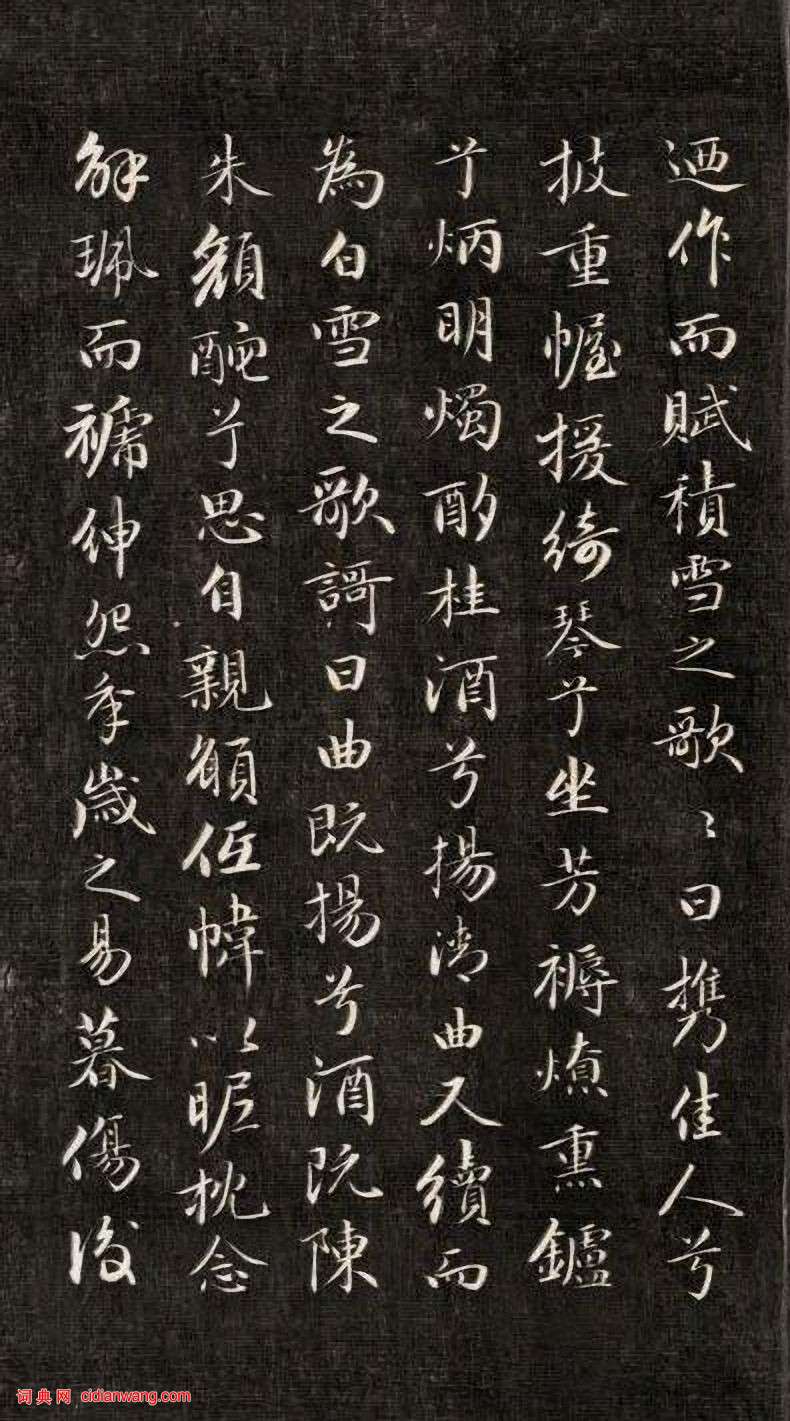 迺作而賦積雪之歌〻曰携佳人兮
披重幄援綺琴兮坐芳褥燎熏鑪
兮炳明燭酌桂酒兮揚清曲又續而
為白雪之歌謌曰曲既揚兮酒既陳
朱顏酡兮思自親願低幃以昵枕念
解珮而褫紳怨年歲之易暮傷後
词典网 cidianwang.com